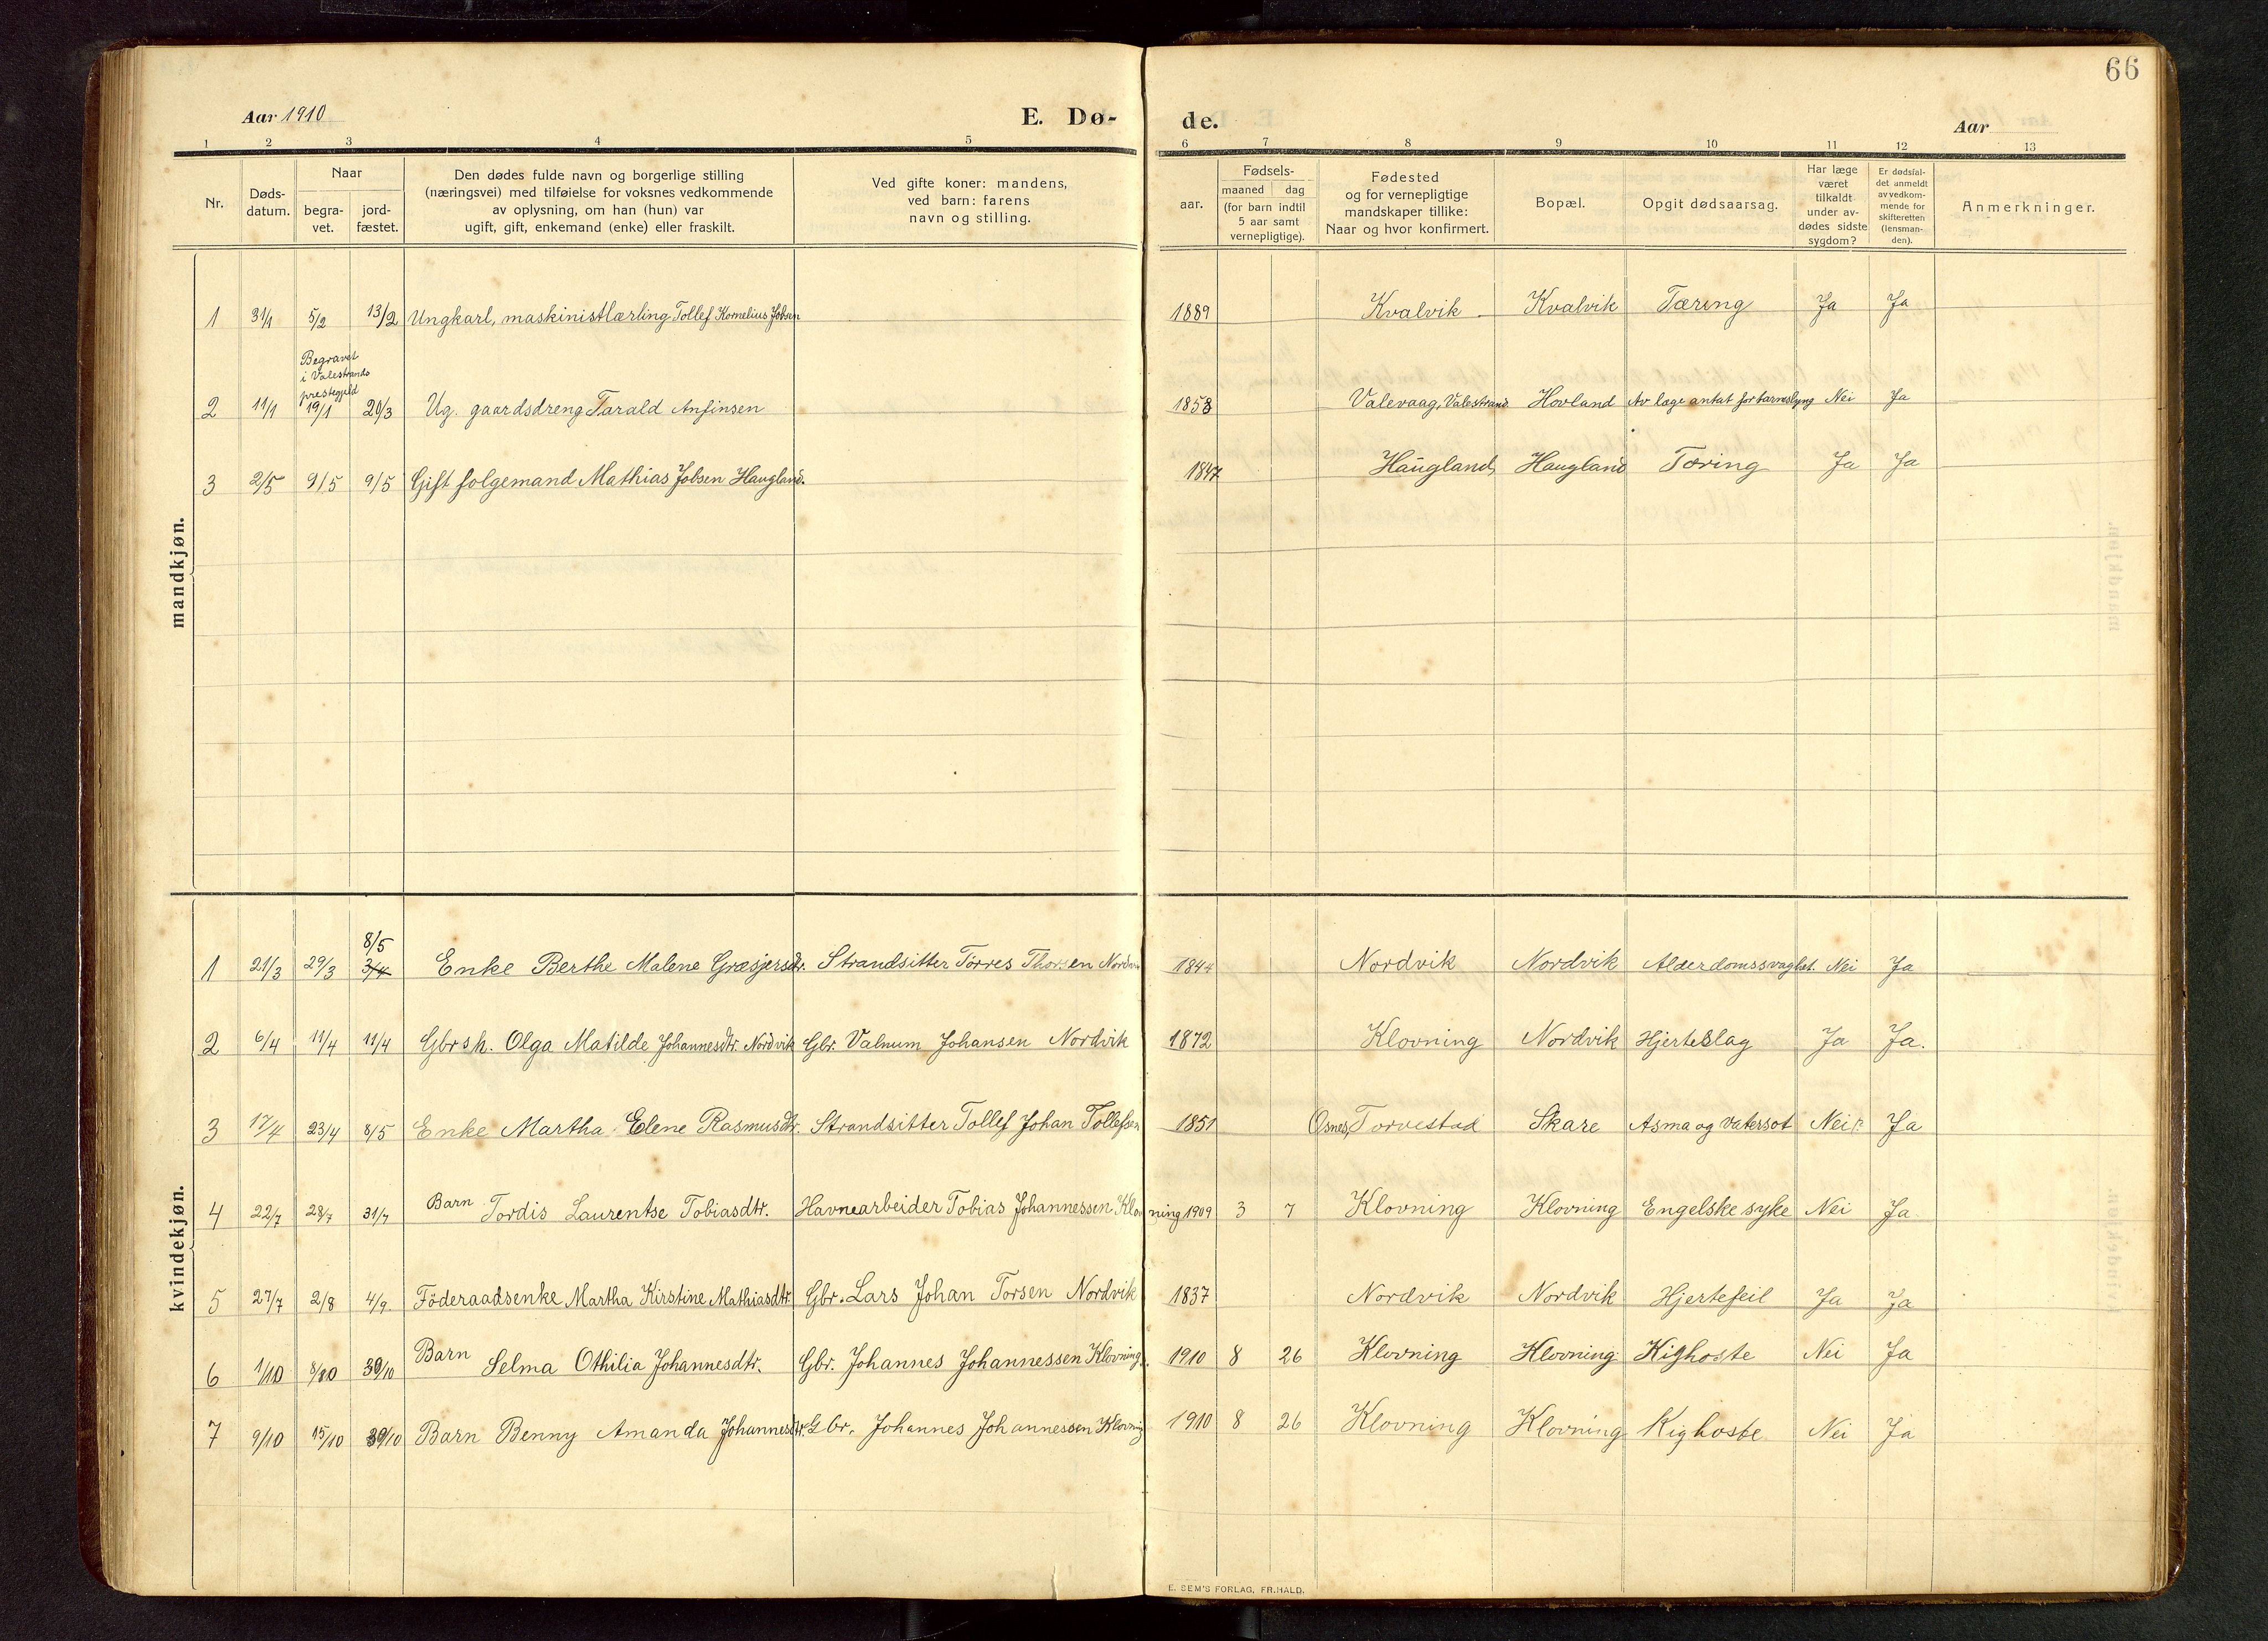 66
Aar 1910 E. Dø- de. Aar
1 2 3 4 5 6 7 8 9 10 11 12 13
Nr.
Døds-
datum.
Naar
begra-
vet.
jord-
fæstet.
Den dødes fulde navn og borgerlige stilling
(næringsvei) med tilføielse for voksnes vedkommende
av oplysning, om han (hun) var
ugift, gift, enkemand (enke) eller fraskilt.
Ved gifte koner: mandens,
ved barn: farens
navn og stilling.
aar.
Fødsels-
maaned dag
(for barn indtil
5 aar samt
vernepligtige).
Fødested
og for vernepligtige
mandskaper tillike:
Naar og hvor konfirmert.
Bopæl.
Opgit dødsaarsag.
Har læge
været
tilkaldt
under av-
dødes sidste
sygdom?
Er dødsfal-
det anmeldt
av vedkom-
mende for
skifteretten
(lensman-
den).
Anmerkninger.
mandkjøn.
1 31/1 5/2 13/2 Ungkarl, maskinistlærling Tollef Kornelius Jobsen 1889 Kvalvik Kvalvik Tæring Ja Ja
Begravet
i Valestrands
prestegjeld
2 11/1 19/1 20/3 Ug. gaardsdreng Tarald Anfinsen 1858 Valevaag, Valestrand Hovland Av læge antat for barneslyng Nei Ja
3 2/5 9/5 9/5 Gift folgemand Mathias Jobsen Haugland. 1847 Haugland, Haugland Tæring Ja Ja
kvindekjøn.
8/5
1 21/3 29/3 3/4 Enke Berthe Malene Græsjersdtr. Strandsitter Tørres Thorsen Nordvik 1844 Nordvik Nordvik Alderdomssvaghet. Nei Ja
2 6/4 11/4 11/4 Gbrsh. Olga Matilde Johannesdtr. Nordvik Gbr. Valnum Johansen Nordvik 1872 Klovning Nordvik Hjerteslag Ja Ja.
3 17/4 23/4 8/5 Enke Martha Elene Rasmusdtr. Strandsitter Tollef Johan Tollefsen 1851 Osnes, Torvestad Skare Asma og vatersot Nei Ja
4 22/7 28/7 31/7 Barn Tordis Laurentse Tobiasdtr. Havnearbeider Tobias Johannessen Klovning 1909 3 7 Klovning Klovning Engelske syke Nei Ja
5 27/7 2/8 4/9 Föderaadsenke Martha Kirstine Mathiasdtr. Gbr. Lars Johan Torsen Nordvik 1837 Nordvik Nordvik Hjertefeil Ja Ja
6 1/10 8/10 30/10 Barn Selma Othilia Johannesdtr. Gbr. Johannes Johannessen Klovning. 1910 8 26 Klovning Klovning Kighoste Nei Ja
7 9/10 15/10 30/10 Barn Benny Amanda Johannesdtr. Gbr. Johannes Johannessen Klovning 1910 8 26 Klovning Klovning Kighoste Nei Ja
E. SEM'S FORLAG, FR.HALD.